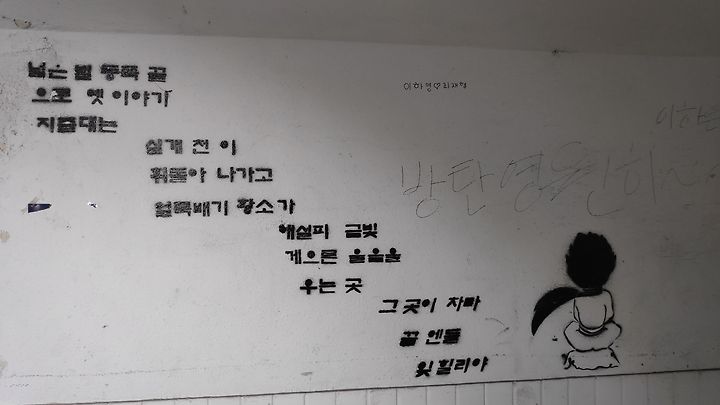 넓은 벌 동쪽 끝
으로 옛 이야기
지줄대는
실개 천 이
휘돌아 나가고
얼룩배기 황소가
해설피 금빛
게으른 울음을
우는 곳
그 곳이 차마
꿈 엔들
잊힐리야
이하영♡리재형
이하
방탄영원하자